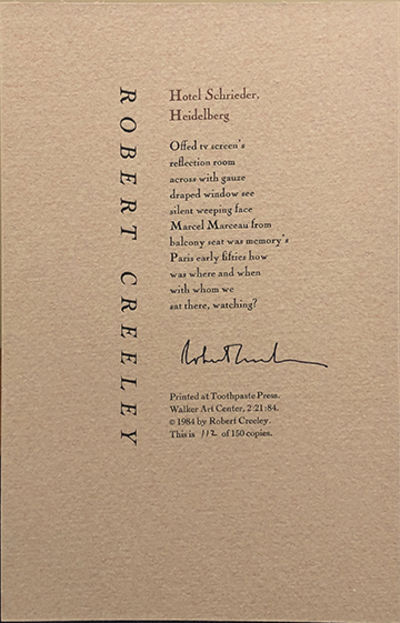 ROBERT CREELEY
Hotel Schrieder,
Heidelberg
Offed tv screen's
reflection room
across with gauze
draped window see
silent weeping face
Marcel Marceau from
balcony seat was memory's
Paris early fifties how
was where and when
with whom we
sat there, watching?
Robert Creeley
Printed at Toothpaste Press.
Walker Art Center, 2:21:84.
© 1984 by Robert Creeley.
This is 112 of 150 copies.